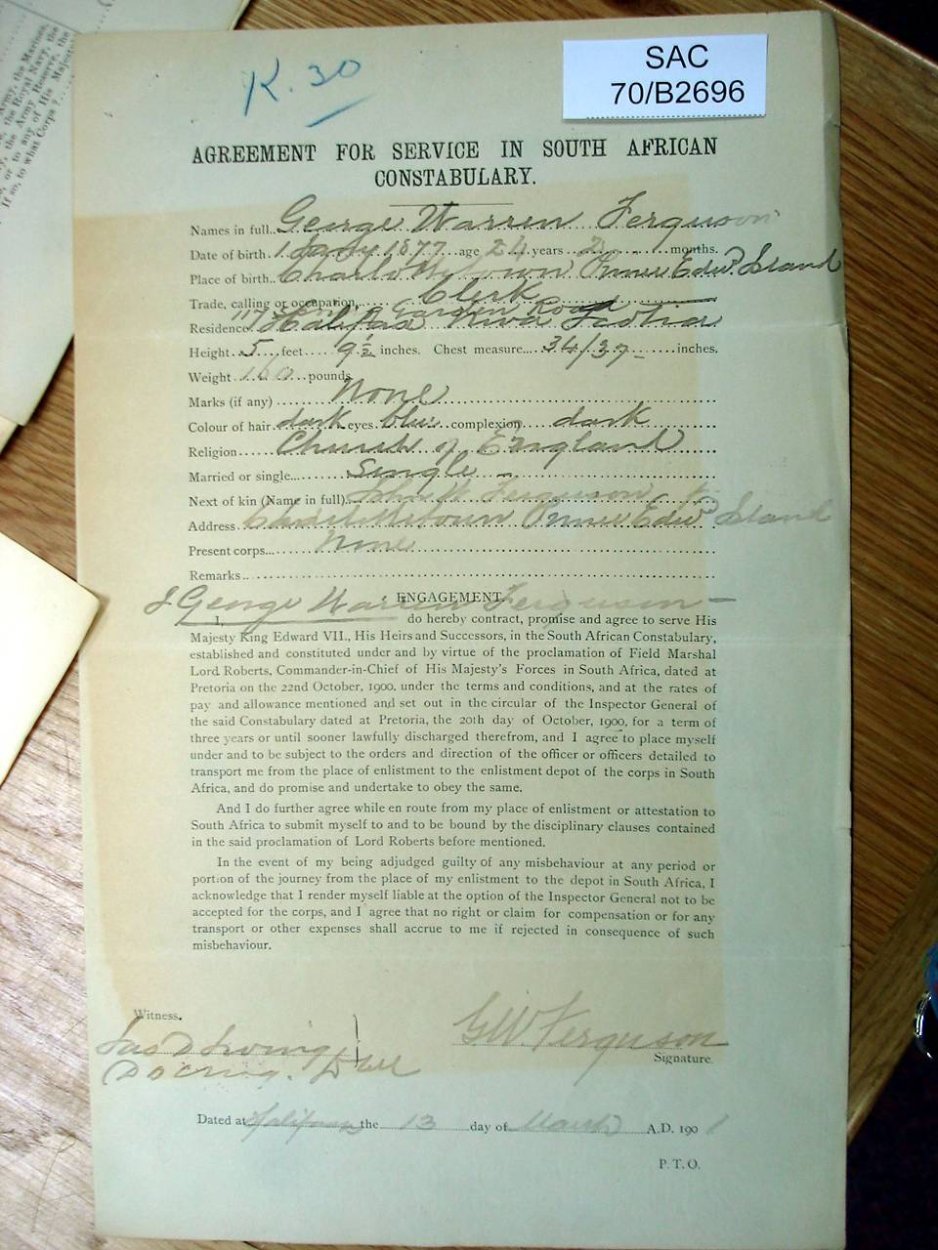 Army, the Marines,
the Royal Navy, the
the Army Reserve, the
or to any of His Majesty
If so, to what Corps ?
K.30
SAC
70/B2696
AGREEMENT FOR SERVICE IN SOUTH AFRICAN
CONSTABULARY.
Names in full George Warren Ferguson
Date of birth 1877 age 24 years 2 months.
Place of birth Charlottetown Prince Edwd Island
Trade, calling or occupation, Clerk
117 Garden Road
Residence Halifax Nova Scotia
Height 5 feet 9½ inches. Chest measure 34/37 inches.
Weight 160 pounds
Marks (if any) None
Colour of hair dark eyes blue complexion dark
Religion Church of England
Married or single Single
Next of kin (Name in full) Ferguson
Address Charlottetown Prince Edwd Island
Present corps None
Remarks
ENGAGEMENT.
I George Warren Ferguson
I, do hereby contract, promise and agree to serve His
Majesty King Edward VII., His Heirs and Successors, in the South African Constabulary,
established and constituted under and by virtue of the proclamation of Field Marshal
Lord Roberts, Commander-in-Chief of His Majesty's Forces in South Africa, dated at
Pretoria on the 22nd October, 1900, under the terms and conditions, and at the rates of
pay and allowance mentioned and set out in the circular of the Inspector General of
the said Constabulary dated at Pretoria, the 20th day of October, 1900, for a term of
three years or until sooner lawfully discharged therefrom, and I agree to place myself
under and to be subject to the orders and direction of the officer or officers detailed to
transport me from the place of enlistment to the enlistment depot of the corps in South
Africa, and do promise and undertake to obey the same.
And I do further agree while en route from my place of enlistment or attestation to
South Africa to submit myself to and to be bound by the disciplinary clauses contained
in the said proclamation of Lord Roberts before mentioned.
In the event of my being adjudged guilty of any misbehaviour at any period or
portion of the journey from the place of my enlistment to the depot in South Africa, I
acknowledge that I render myself liable at the option of the Inspector General not to be
accepted for the corps, and I agree that no right or claim for compensation or for any
transport or other expenses shall accrue to me if rejected in consequence of such
misbehaviour.
Witness.
Jas D Irving
GW Ferguson
Signature
Dated at Halifax the 13 day of March A.D. 1901
P. T. O.